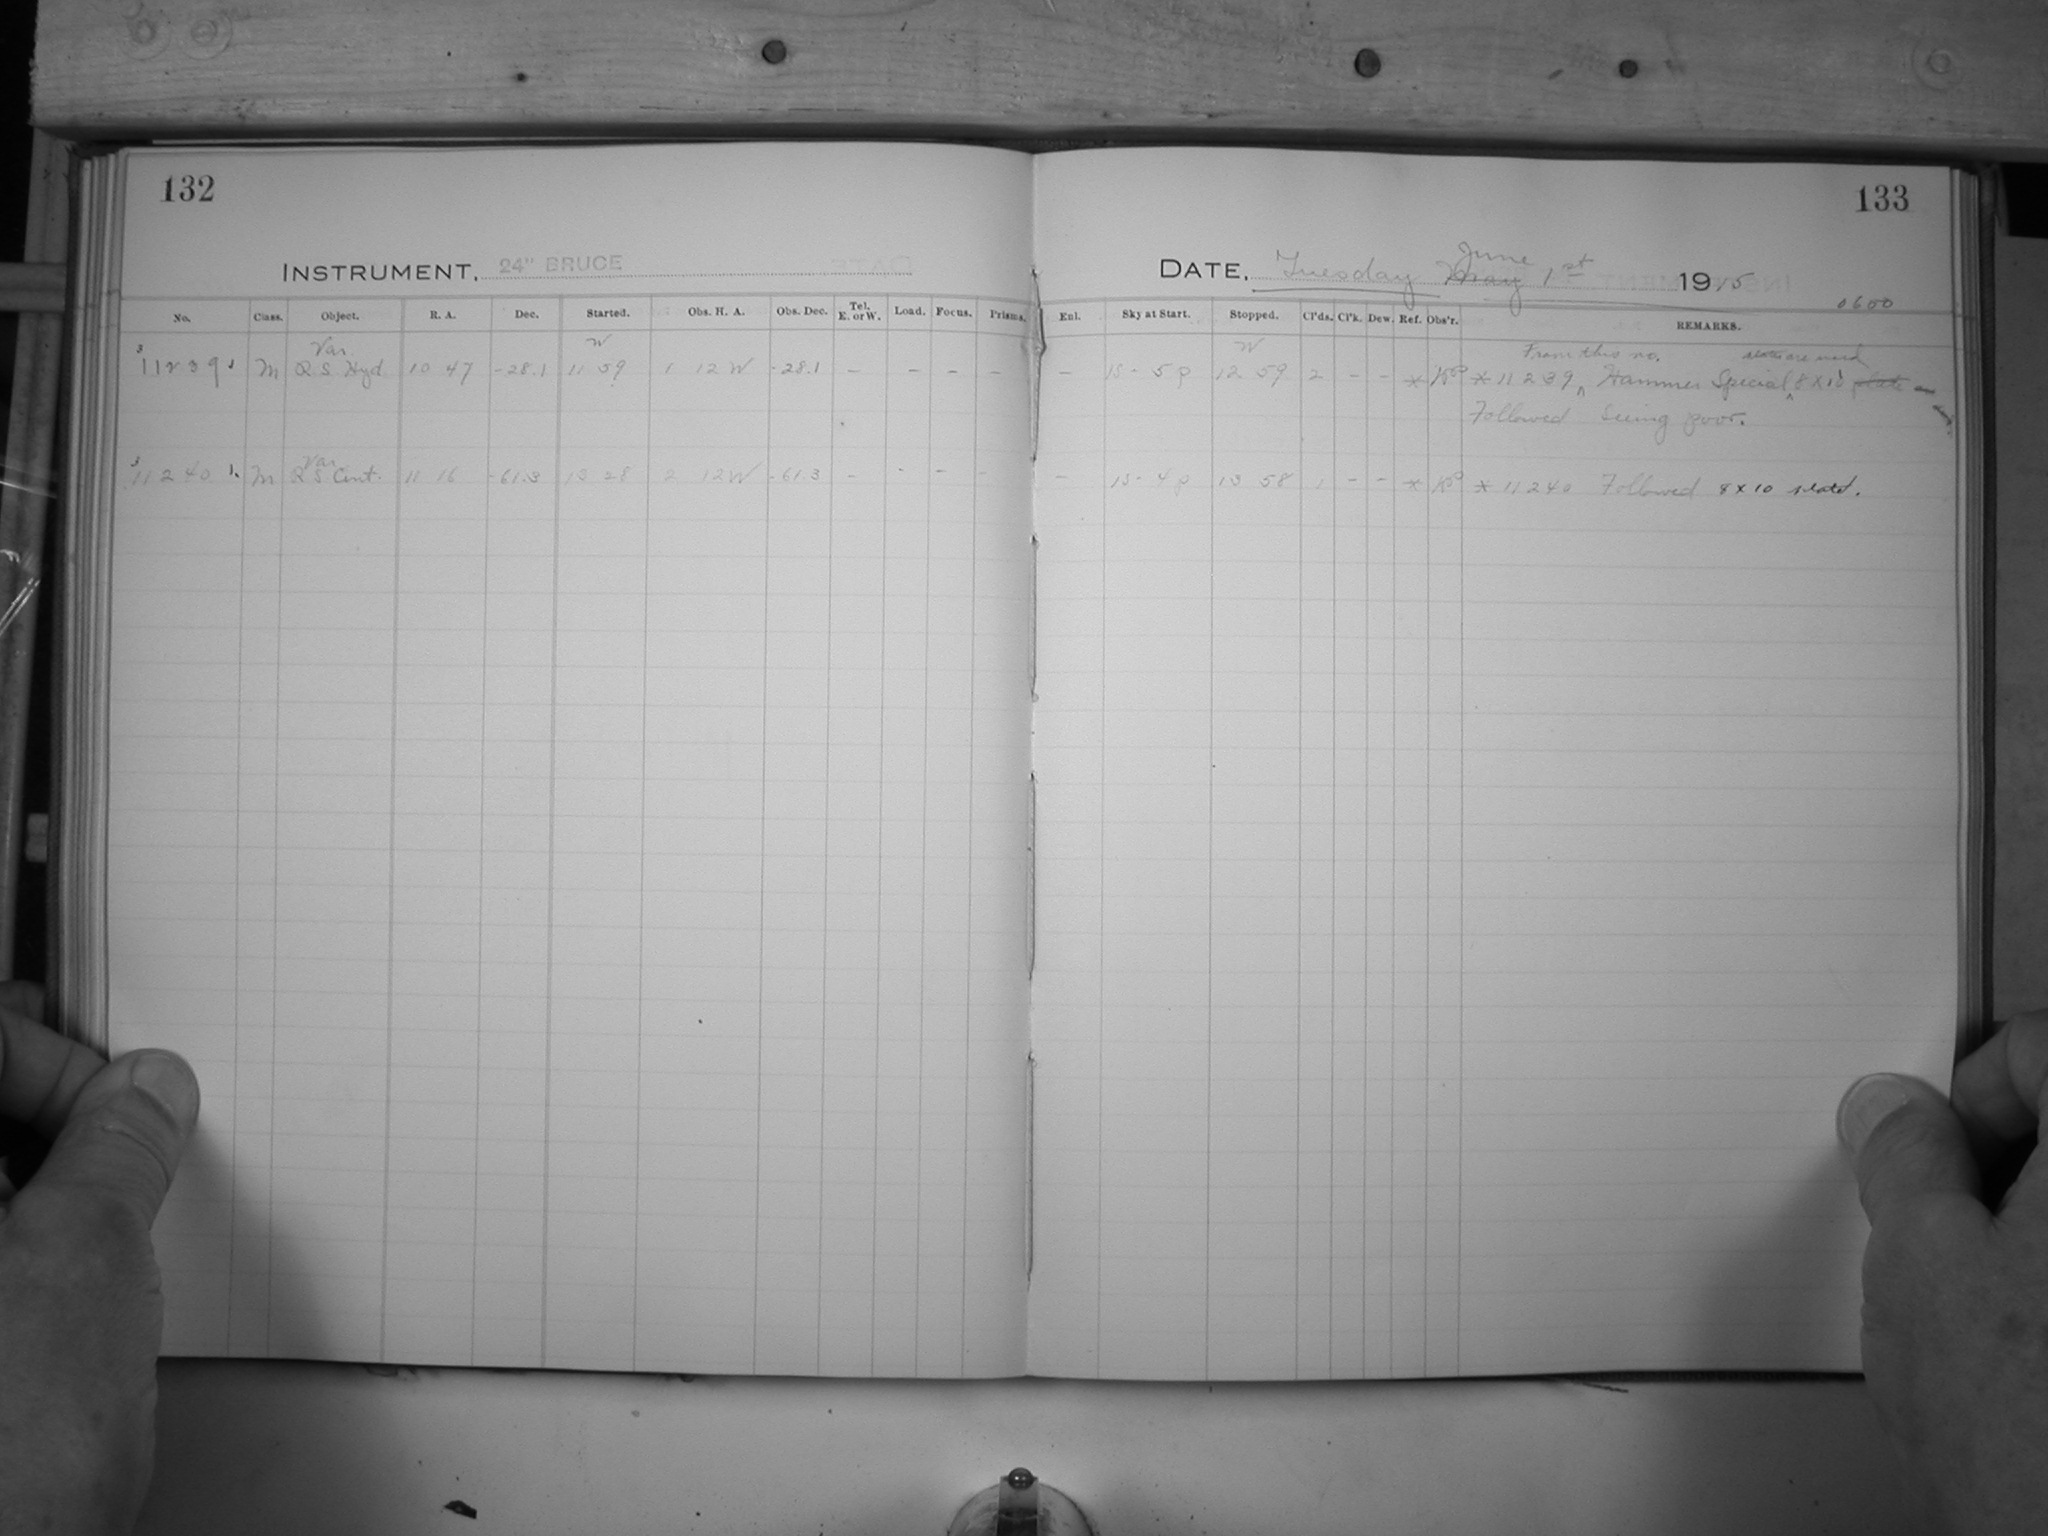 132
133
INSTRUMENT, 24" BRUCE
DATE, Tuesday May June 1st 1915
0600
No. Class. Object. R. A. Dec. Started. Obs. H. A. Obs. Dec. Tel. E. or W. Load. Focus. Prisms. Enl. Sky at Start. Stopped. Cl'ds. Cl'k. Dew. Ref. Obs'r. REMARKS.
Var W W From this no. plates are used
3 11239 1 M RS Hyd 10 47 -28.1 11 59 1 12 W -28.1 - - - - - 15 - 5 p 12 59 2 - - * * 11239 Hammer Special 8 x 10 plate
Followed Seeing poor.
Var
3 11240 1. M RS Cent. 11 16 -61.3 13 28 2 12 W -61.3 - - - - - 15 - 4 p 13 58 1 - - * * 11240 Followed 8 x 10 plate.